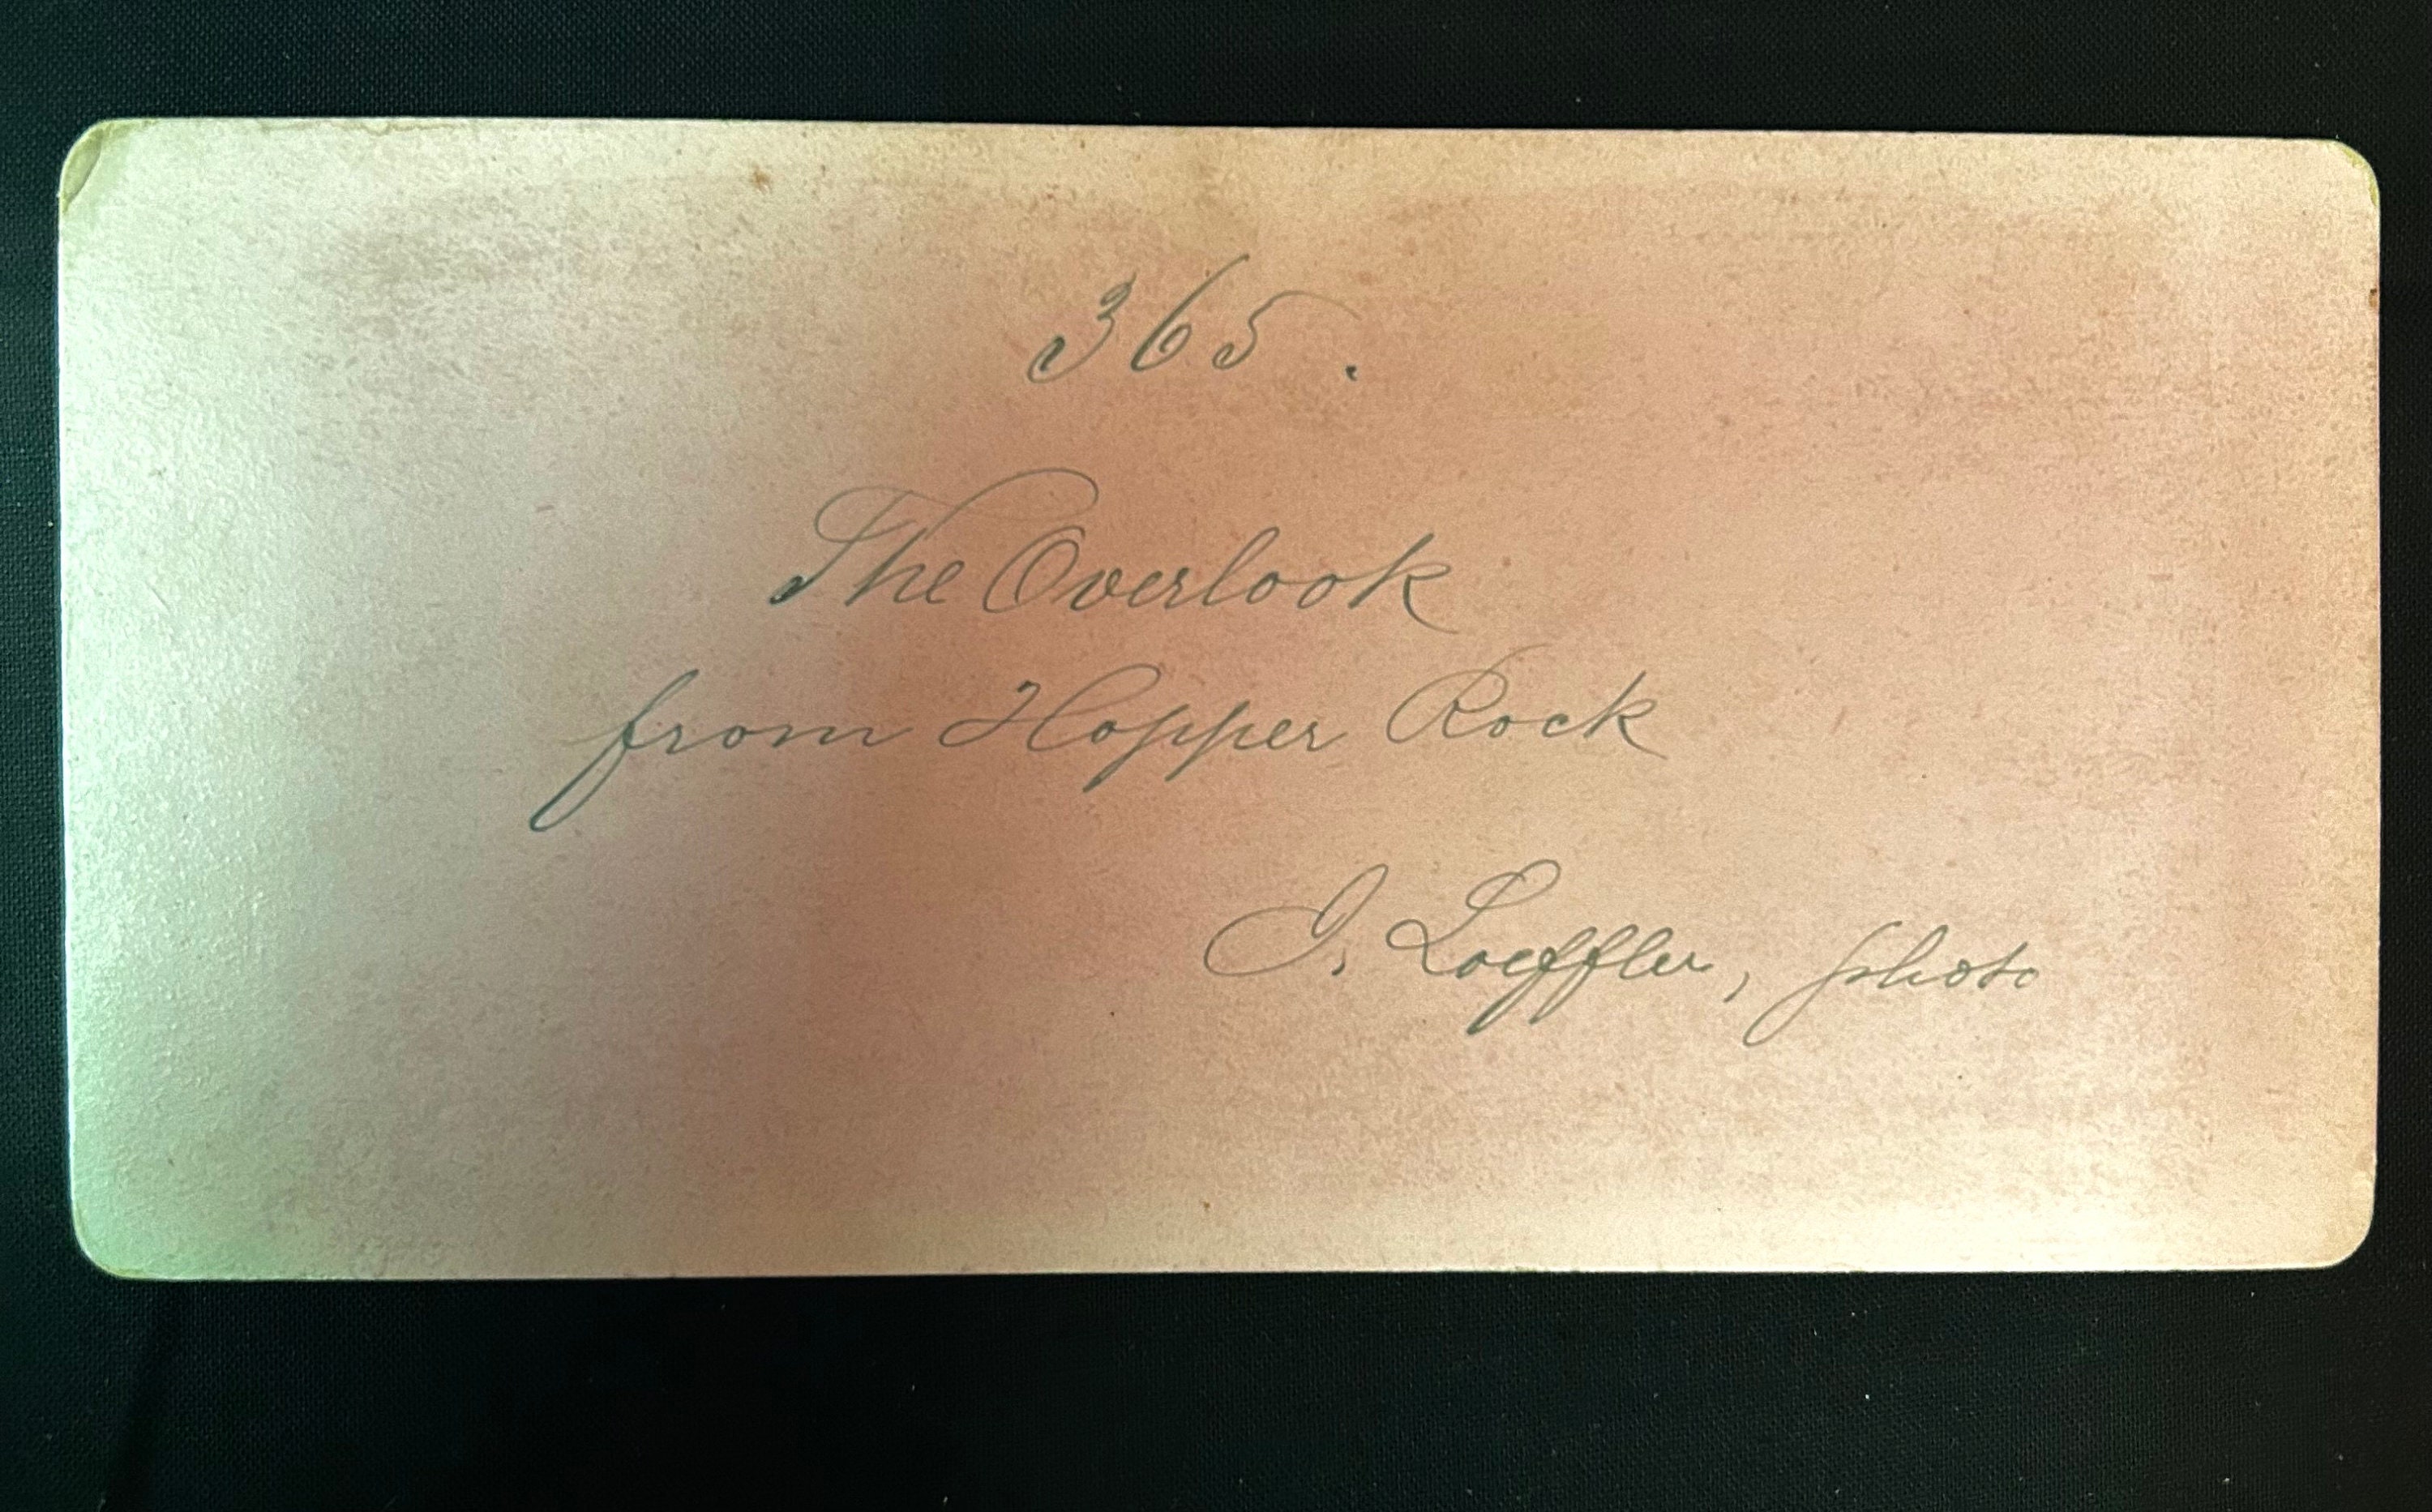 365.
The Overlook
from Hopper Rock
J. Loeffler, photo